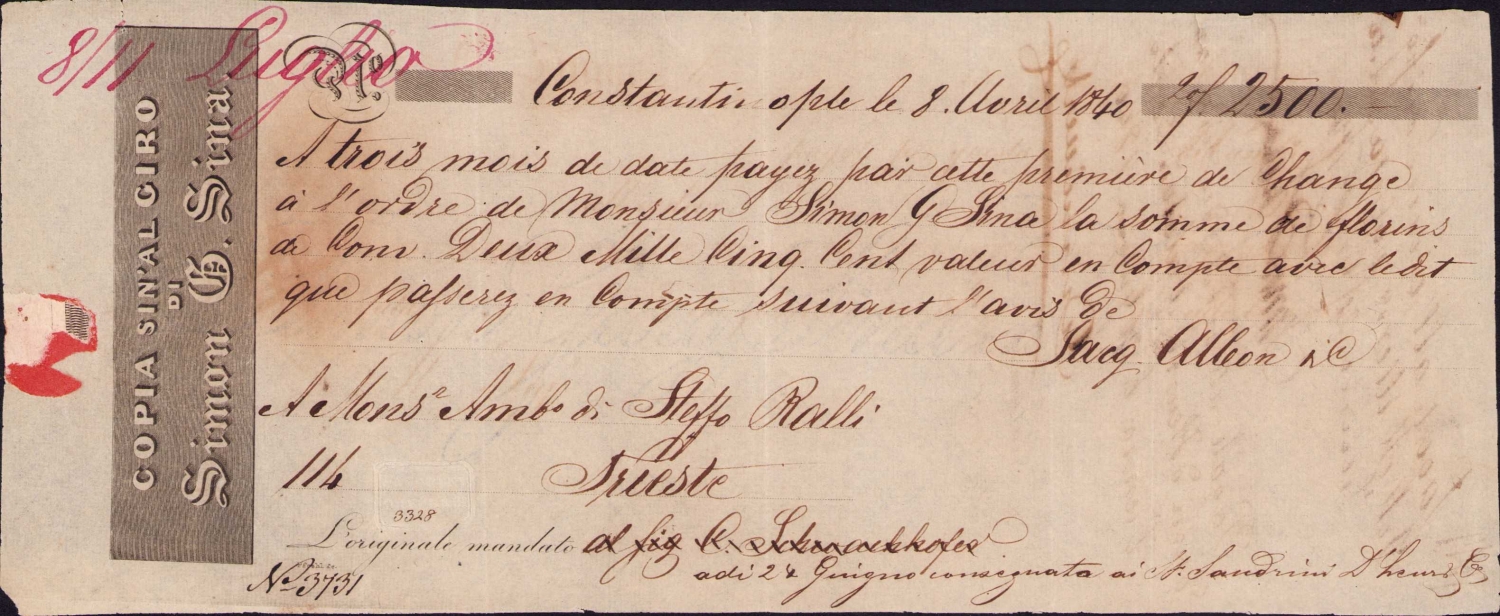 8/11 Luglio
COPIA SIN'AL GIRO
DI
Simon G. Sina
Pl.
Constantinople le 8. Avril 1840 2500.-
A trois mois de date payez par cette première de Change
à l'ordre de Monsieur Simon G Sina la somme de florins
de Conv. Deux Mille Cinq Cent valeur en Compte avec ledit
que passerez en Compte suivant l'avis de
Jacq Alleon & C
A Monsr Ambo di Steffo Ralli
114 Trieste
3328
L'originale mandato al Sig C. Schwachhofer
adi 24 Giugno consegnata ai Sandrini D'heur
No 3731